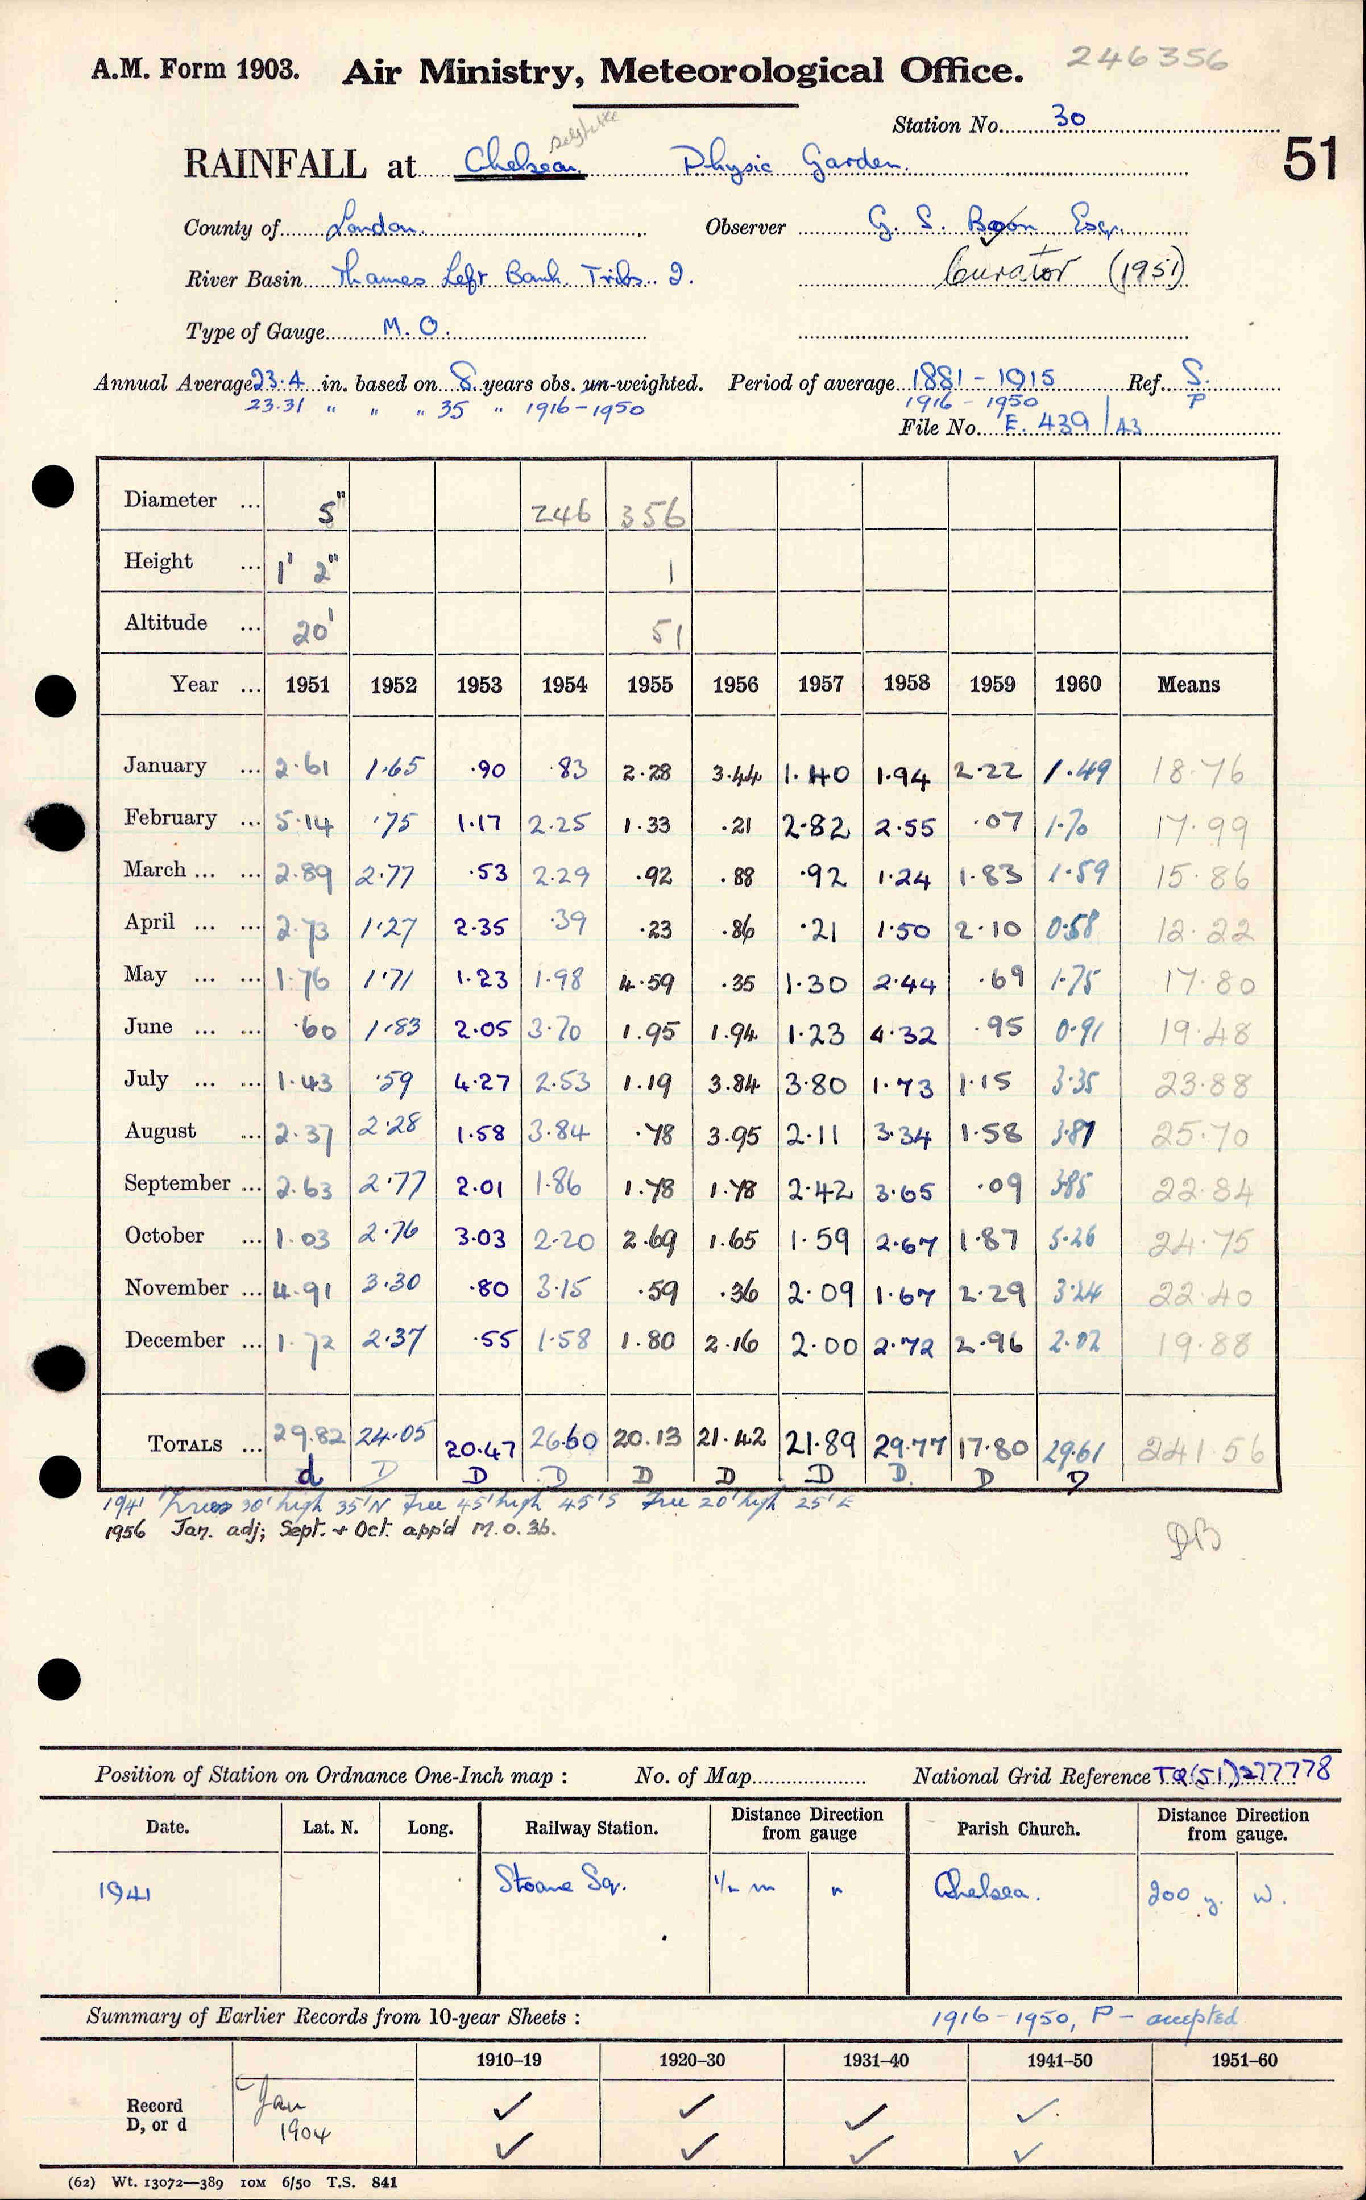 A.M. Form 1903. Air Ministry, Meteorological Office. 246356
Station No. 30
51
RAINFALL at Chelsea Physic Garden.
County of London. Observer G. S. Boon Esq.
River Basin Thames Left Bank Tribs. 2. Curator (1951)
Type of Gauge M. O.
Annual Average 23.4 in. based on 8 years obs. un-weighted. Period of average 1881 - 1915 Ref. S.
23.31 " " " 35 " 1916-1950 1916 - 1950 P
File No. E. 439/A3
Diameter ... 5" 246 356
Height ... 1' 2" 1
Altitude ... 20' 51
Year ... 1951 1952 1953 1954 1955 1956 1957 1958 1959 1960 Means
January ... 2.61 1.65 .90 .83 2.28 3.44 1.40 1.94 2.22 1.49 18.76
February ... 5.14 .75 1.17 2.25 1.33 .21 2.82 2.55 .07 1.70 17.99
March ... ... 2.89 2.77 .53 2.29 .92 .88 .92 1.24 1.83 1.59 15.86
April ... ... 2.73 1.27 2.35 .39 .23 .86 .21 1.50 2.10 0.58 12.22
May ... ... 1.76 1.71 1.23 1.98 4.59 .35 1.30 2.44 .69 1.75 17.80
June ... ... .60 1.83 2.05 3.70 1.95 1.94 1.23 4.32 .95 0.91 19.48
July ... ... 1.43 .59 4.27 2.53 1.19 3.84 3.80 1.73 1.15 3.35 23.88
August ... 2.37 2.28 1.58 3.84 .78 3.95 2.11 3.34 1.58 3.87 25.70
September ... 2.63 2.77 2.01 1.86 1.78 1.78 2.42 3.65 .09 3.85 22.84
October ... 1.03 2.76 3.03 2.20 2.69 1.65 1.59 2.67 1.87 5.26 24.75
November ... 4.91 3.30 .80 3.15 .59 .36 2.09 1.67 2.29 3.24 22.40
December ... 1.72 2.37 .55 1.58 1.80 2.16 2.00 2.72 2.96 2.02 19.88
TOTALS ... 29.82 24.05 20.47 26.60 20.13 21.42 21.89 29.77 17.80 29.61 241.56
d D D D D D D D. D D
1941 Trees 30' high 35' N Tree 45' high 45' S Tree 20' high 25' E
1956 Jan. adj; Sept. + Oct. app'd M.O. 3b.
DB
Position of Station on Ordnance One-Inch map : No. of Map National Grid Reference TQ(51)277778
Date. Lat. N. Long. Railway Station. Distance Direction from gauge Parish Church. Distance Direction from gauge.
1941 Sloane Sq. 1/2 m n Chelsea. 200 y. W.
Summary of Earlier Records from 10-year Sheets : 1916-1950, P - accepted
1910–19 1920–30 1931–40 1941–50 1951–60
Record D, or d Jan 1904 ✓ ✓ ✓ ✓
✓ ✓ ✓ ✓
(62) Wt. 13072—389 10M 6/50 T.S. 841